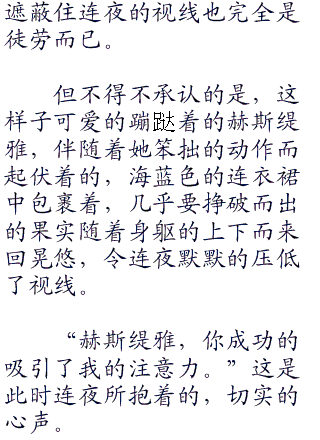 遮蔽住连夜的视线也完全是
徒劳而已。
但不得不承认的是，这
样子可爱的蹦跶着的赫斯缇
雅，伴随着她笨拙的动作而
起伏着的，海蓝色的连衣裙
中包裹着，几乎要挣破而出
的果实随着身躯的上下而来
回晃悠，令连夜默默的压低
了视线。
“赫斯缇雅，你成功的
吸引了我的注意力。”这是
此时连夜所抱着的，切实的
心声。